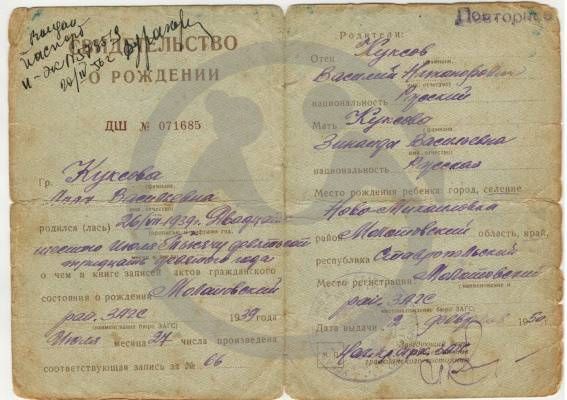 Выдан
паспорт
20/IV 56 г.
СВИДЕТЕЛЬСТВО
О РОЖДЕНИИ
ДШ № 071685
Гр. Куксова
фамилия
Васильевна
имя, отчество
родился (лась) 26/VII 1939 г. Двадцать
прописью и цифрами год,
шестого Июля Тысяча девятьсот
тридцать девятого года
о чем в книге записей актов гражданского
состояния о рождении
рай. ЗАГС 1939 года
(наименование бюро ЗАГС)
Июля месяца 27 числа произведена
соответствующая запись за № 66
Повторное
Родители:
Отец Куксов
фамилия
Василий Никанорович
имя, отчество
национальность Русский
Мать Куксова
фамилия
Зинаида Васильевна
имя, отчество
национальность Русская
Место рождения ребенка: город, селение
Ново-Михайловка
район область, край,
республика Ставропольский
Место регистрации
наименование и
рай. ЗАГС
бюро ЗАГС
Дата выдачи 2 1950 г.
М. П.
Заведующий
гражданского состояния